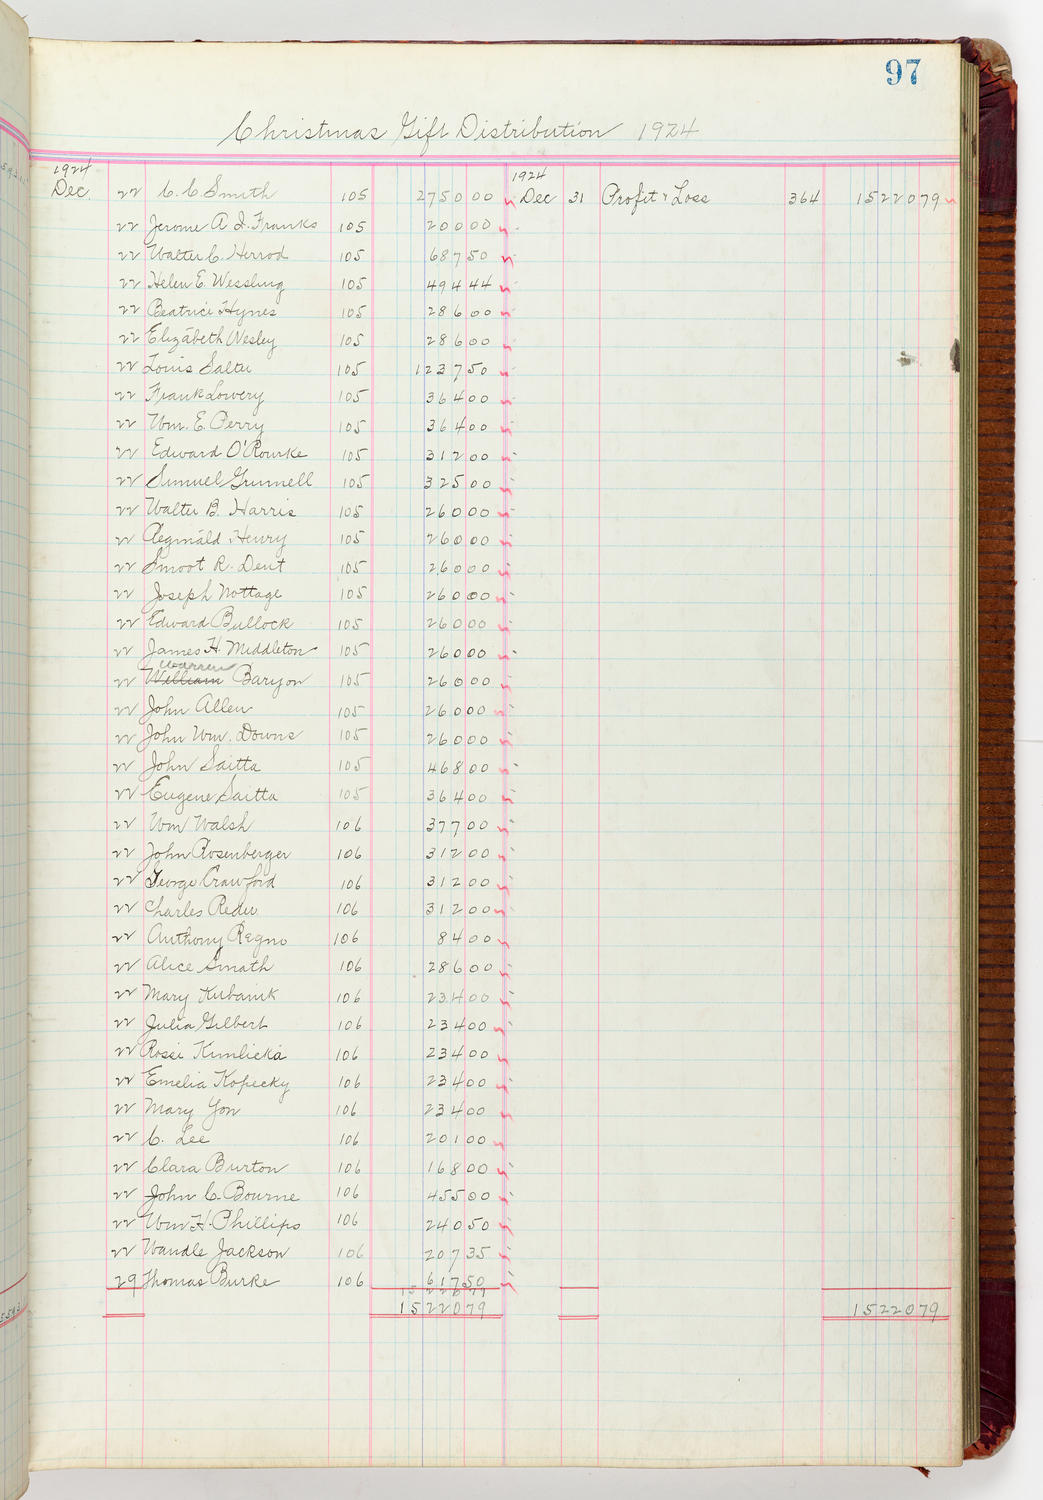 97
Christmas Gift Distribution 1924
1924 1924
Dec. 22 C. C. Smith 105 2750 00 Dec 31 Profit & Loss 364 15220 79
22 Jerome A. I. Franks 105 200 00
22 Walter C. Herrod 105 687 50
22 Helen E. Wessling 105 494 44
22 Beatrice Hynes 105 286 00
22 Elizabeth Wesley 105 286 00
22 Louis Salter 105 1237 50
22 Frank Lowery 105 364 00
22 Wm. E. Perry 105 364 00
22 Edward O'Rourke 105 312 00
22 Samuel Grinnell 105 325 00
22 Walter B. Harris 105 260 00
22 Reginald Henry 105 260 00
22 Smoot R. Dent 105 260 00
22 Joseph Nottage 105 260 00
22 Edward Bullock 105 260 00
22 James H. Middleton 105 260 00
Warren
22 William Baryon 105 260 00
22 John Allen 105 260 00
22 John Wm. Downs 105 260 00
22 John Saitta 105 468 00
22 Eugene Saitta 105 364 00
22 Wm Walsh 106 377 00
22 John Rosenberger 106 312 00
22 George Crawford 106 312 00
22 Charles Reder 106 312 00
22 Anthony Regno 106 84 00
22 Alice Smath 106 286 00
22 Mary Kubanik 106 234 00
22 Julia Gilbert 106 234 00
22 Rossi Kimlicka 106 234 00
22 Emelia Kopecky 106 234 00
22 Mary Yon 106 234 00
22 C. Lee 106 201 00
22 Clara Burton 106 168 00
22 John C. Bourne 106 455 00
22 Wm H. Phillips 106 240 50
22 Wandle Jackson 106 207 35
29 Thomas Burke 106 617 50
15220 79
15220 79 15220 79